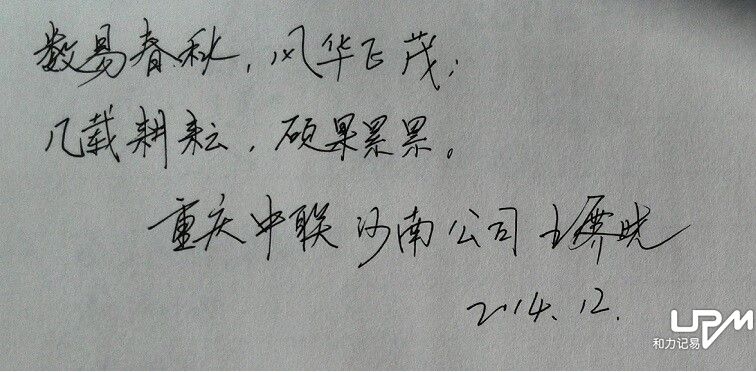 数易春秋，风华正茂；
几载耕耘，硕果累累。
重庆中联 南公司 王
2014.12.
UPM
和力记易